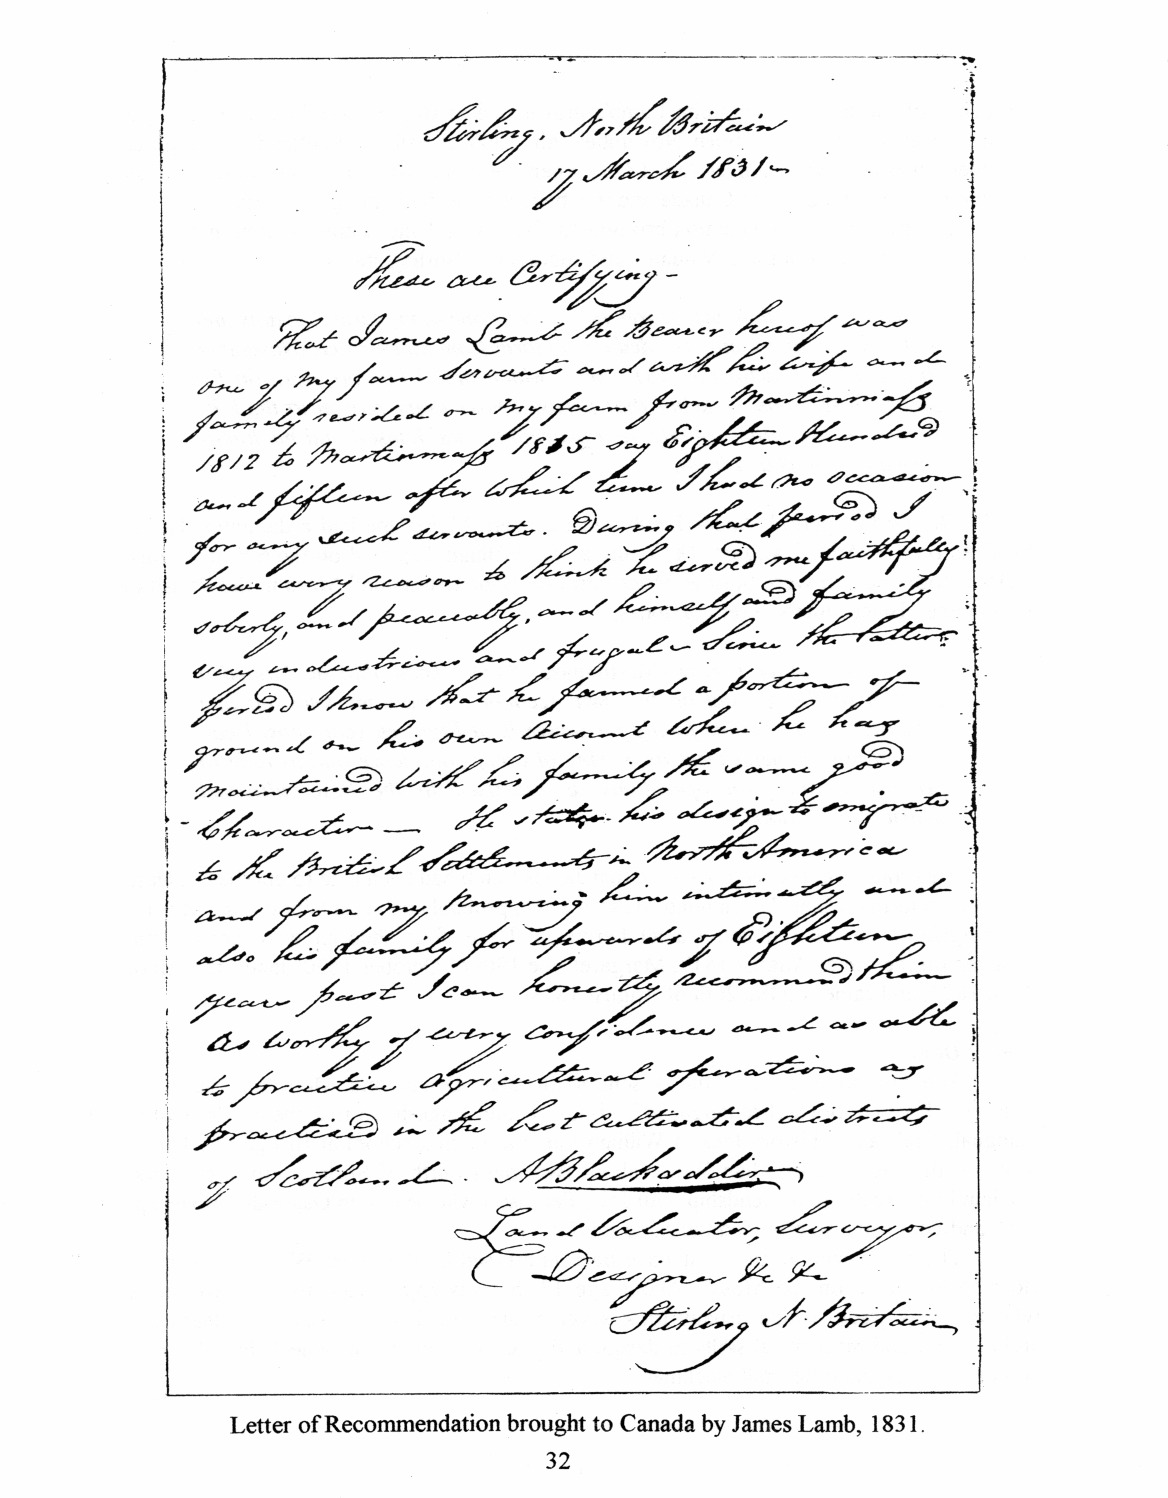 Stirling, North Britain
17 March 1831
These are Certifying -
That James Lamb the Bearer hereof was
one of my farm Servants and with his wife and
family resided on my farm from Martinmass
1812 to Martinmass 1815 say Eighteen Hundred
and fifteen after which time I had no occasion
for any such servants. During that period I
have every reason to think he served me faithfully
soberly, and peaceably, and himself and family
very industrious and frugal - Since the latter
period I know that he farmed a portion of
ground on his own Account where he has
maintained with his family the same good
Character — He states his design to emigrate
to the British Settlements in North America
and from my Knowing him intimatly and
also his family for upwards of Eighteen
years past I can honestly recommend them
as worthy of every confidence and as able
to practice agricultural operations as
practised in the best cultivated districts
of Scotland. A Blackadder
Land Valuator, Surveyor,
Designer &c &c
Stirling N. Britain
Letter of Recommendation brought to Canada by James Lamb, 1831.
32